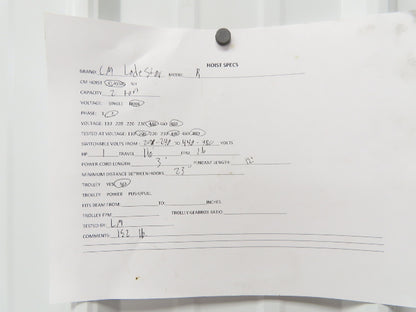 HOIST SPECS
BRAND: CM Lodestar MODEL: R
CM HOIST
CAPACITY: 2 Ton
VOLTAGE: SINGLE
PHASE: 3
VOLTAGE: 115 208 220 230 460
TESTED AT VOLTAGE:
SWITCHABLE VOLTS FROM: 208-240 TO 440-480 VOLTS
HP: 1 FPM: 16
POWER CORD LENGTH: 3' PENDANT LENGTH:
MINIMUM DISTANCE BETWEEN HOOKS: 23"
TROLLEY YES NO
TROLLEY POWER PUSH/PULL
FITS BEAM FROM: TO: INCHES
TROLLEY FPM: TROLLEY GEARBOX RATIO:
TESTED BY: LM
COMMENTS: 152 lb